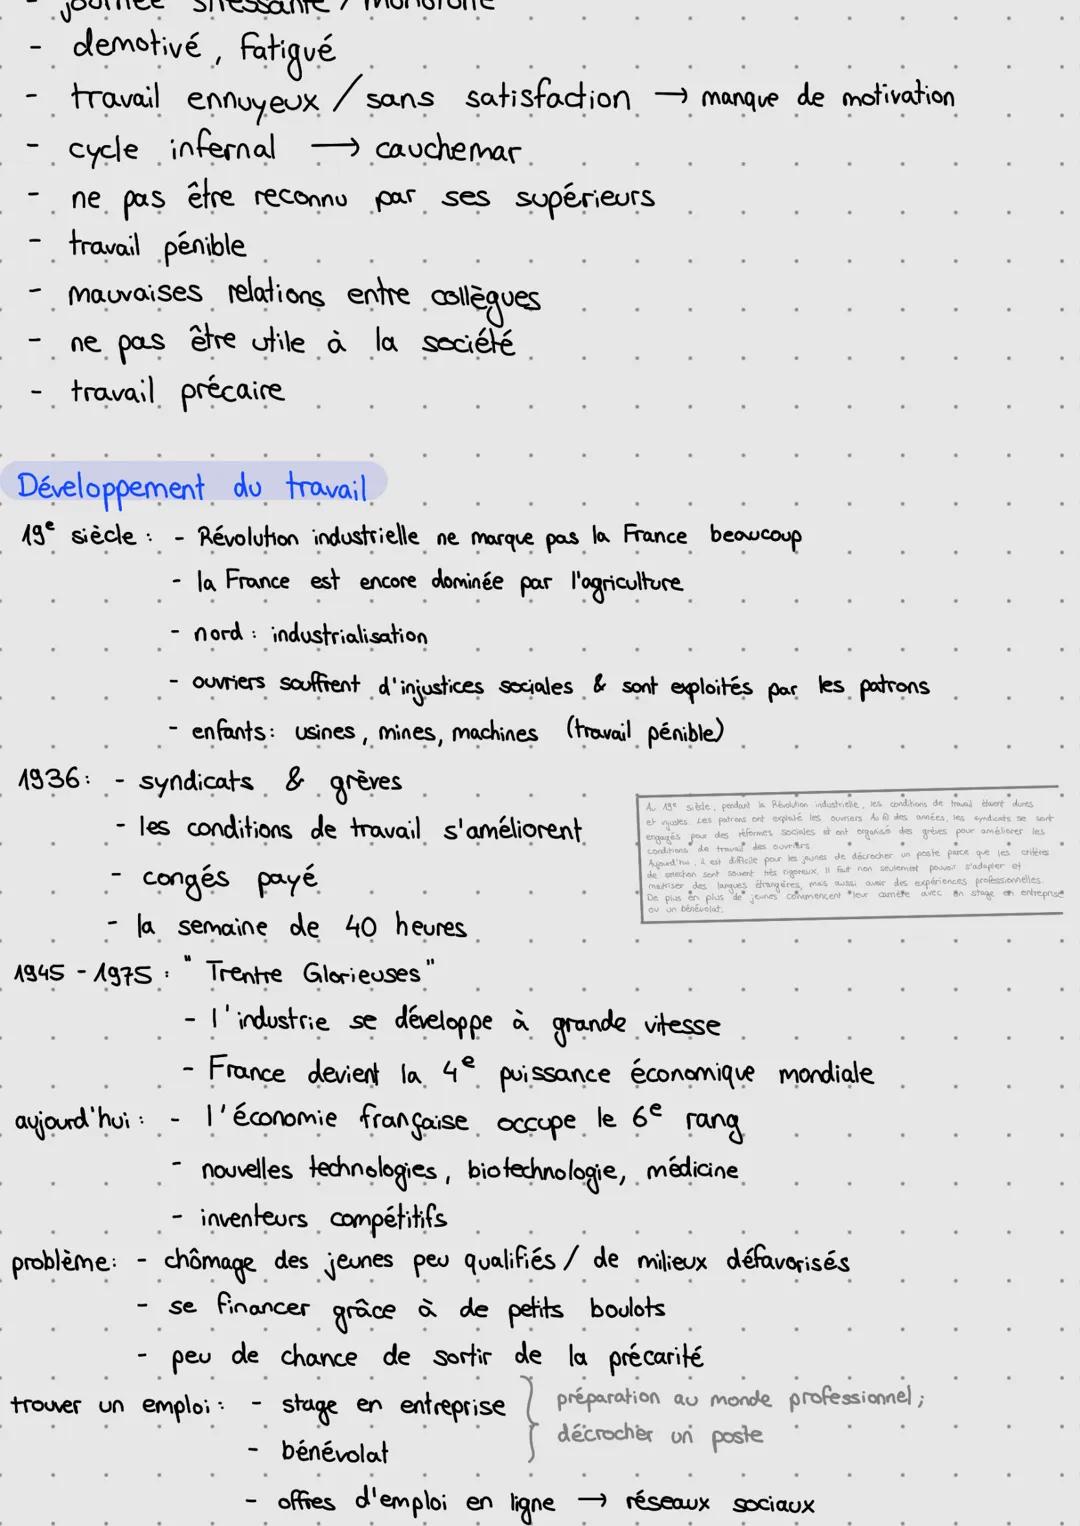 - journée stressante / monotone
- demotivé, fatigué
- travail ennuyeux / sans satisfaction → manque de motivation
- cycle infernal → cauchemar
- ne pas être reconnu par ses supérieurs
- travail pénible
- mauvaises relations entre collègues
- ne pas être utile à la société
- travail précaire
Développement du travail
19e siècle : - Révolution industrielle ne marque pas la France beaucoup
- la France est encore dominée par l'agriculture
- nord : industrialisation
- ouvriers souffrent d'injustices sociales & sont exploités par les patrons
- enfants: usines, mines, machines (travail pénible)
1936: - syndicats & grèves
- les conditions de travail s'améliorent
- congés payé
- la semaine de 40 heures
Au 19e siècle, pendant la Révolution industrielle, les conditions de travail étaient dures
et injustes. Les patrons ont exploité les ouvriers. Au des années, les syndicats se sont
engagés pour des réformes sociales et ont organisé des grèves pour améliorer les
conditions de travail des ouvriers.
Aujourd'hui, il est difficile pour les jeunes de décrocher un poste parce que les critères
de sélection sont souvent très rigoreux. Il faut non seulement pouvoir s'adapter et
maîtriser des langues étrangères, mais aussi avoir des expériences professionnelles.
De plus en plus de jeunes commencent leur carrière avec un stage en entreprise
ou un bénévolat.
1945 - 1975 : "Trentre Glorieuses"
- l'industrie se développe à grande vitesse
- France devient la 4e puissance économique mondiale
aujourd'hui : - l'économie française occupe le 6e rang
- nouvelles technologies, biotechnologie, médicine
- inventeurs compétitifs
problème: - chômage des jeunes peu qualifiés / de milieux défavorisés
- se financer grâce à de petits boulots
- peu de chance de sortir de la précarité
trouver un emploi : - stage en entreprise } préparation au monde professionnel ;
- bénévolat décrocher un poste
- offres d'emploi en ligne → réseaux sociaux